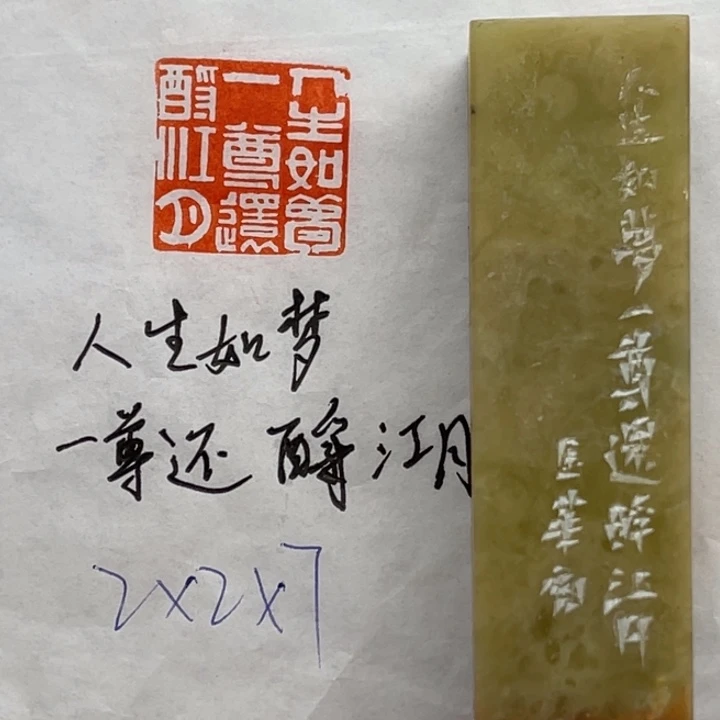 人生如夢
一尊還
酹江月
人生如梦
一尊还酹江月
2×2×7
人生如夢一尊還酹江月
華